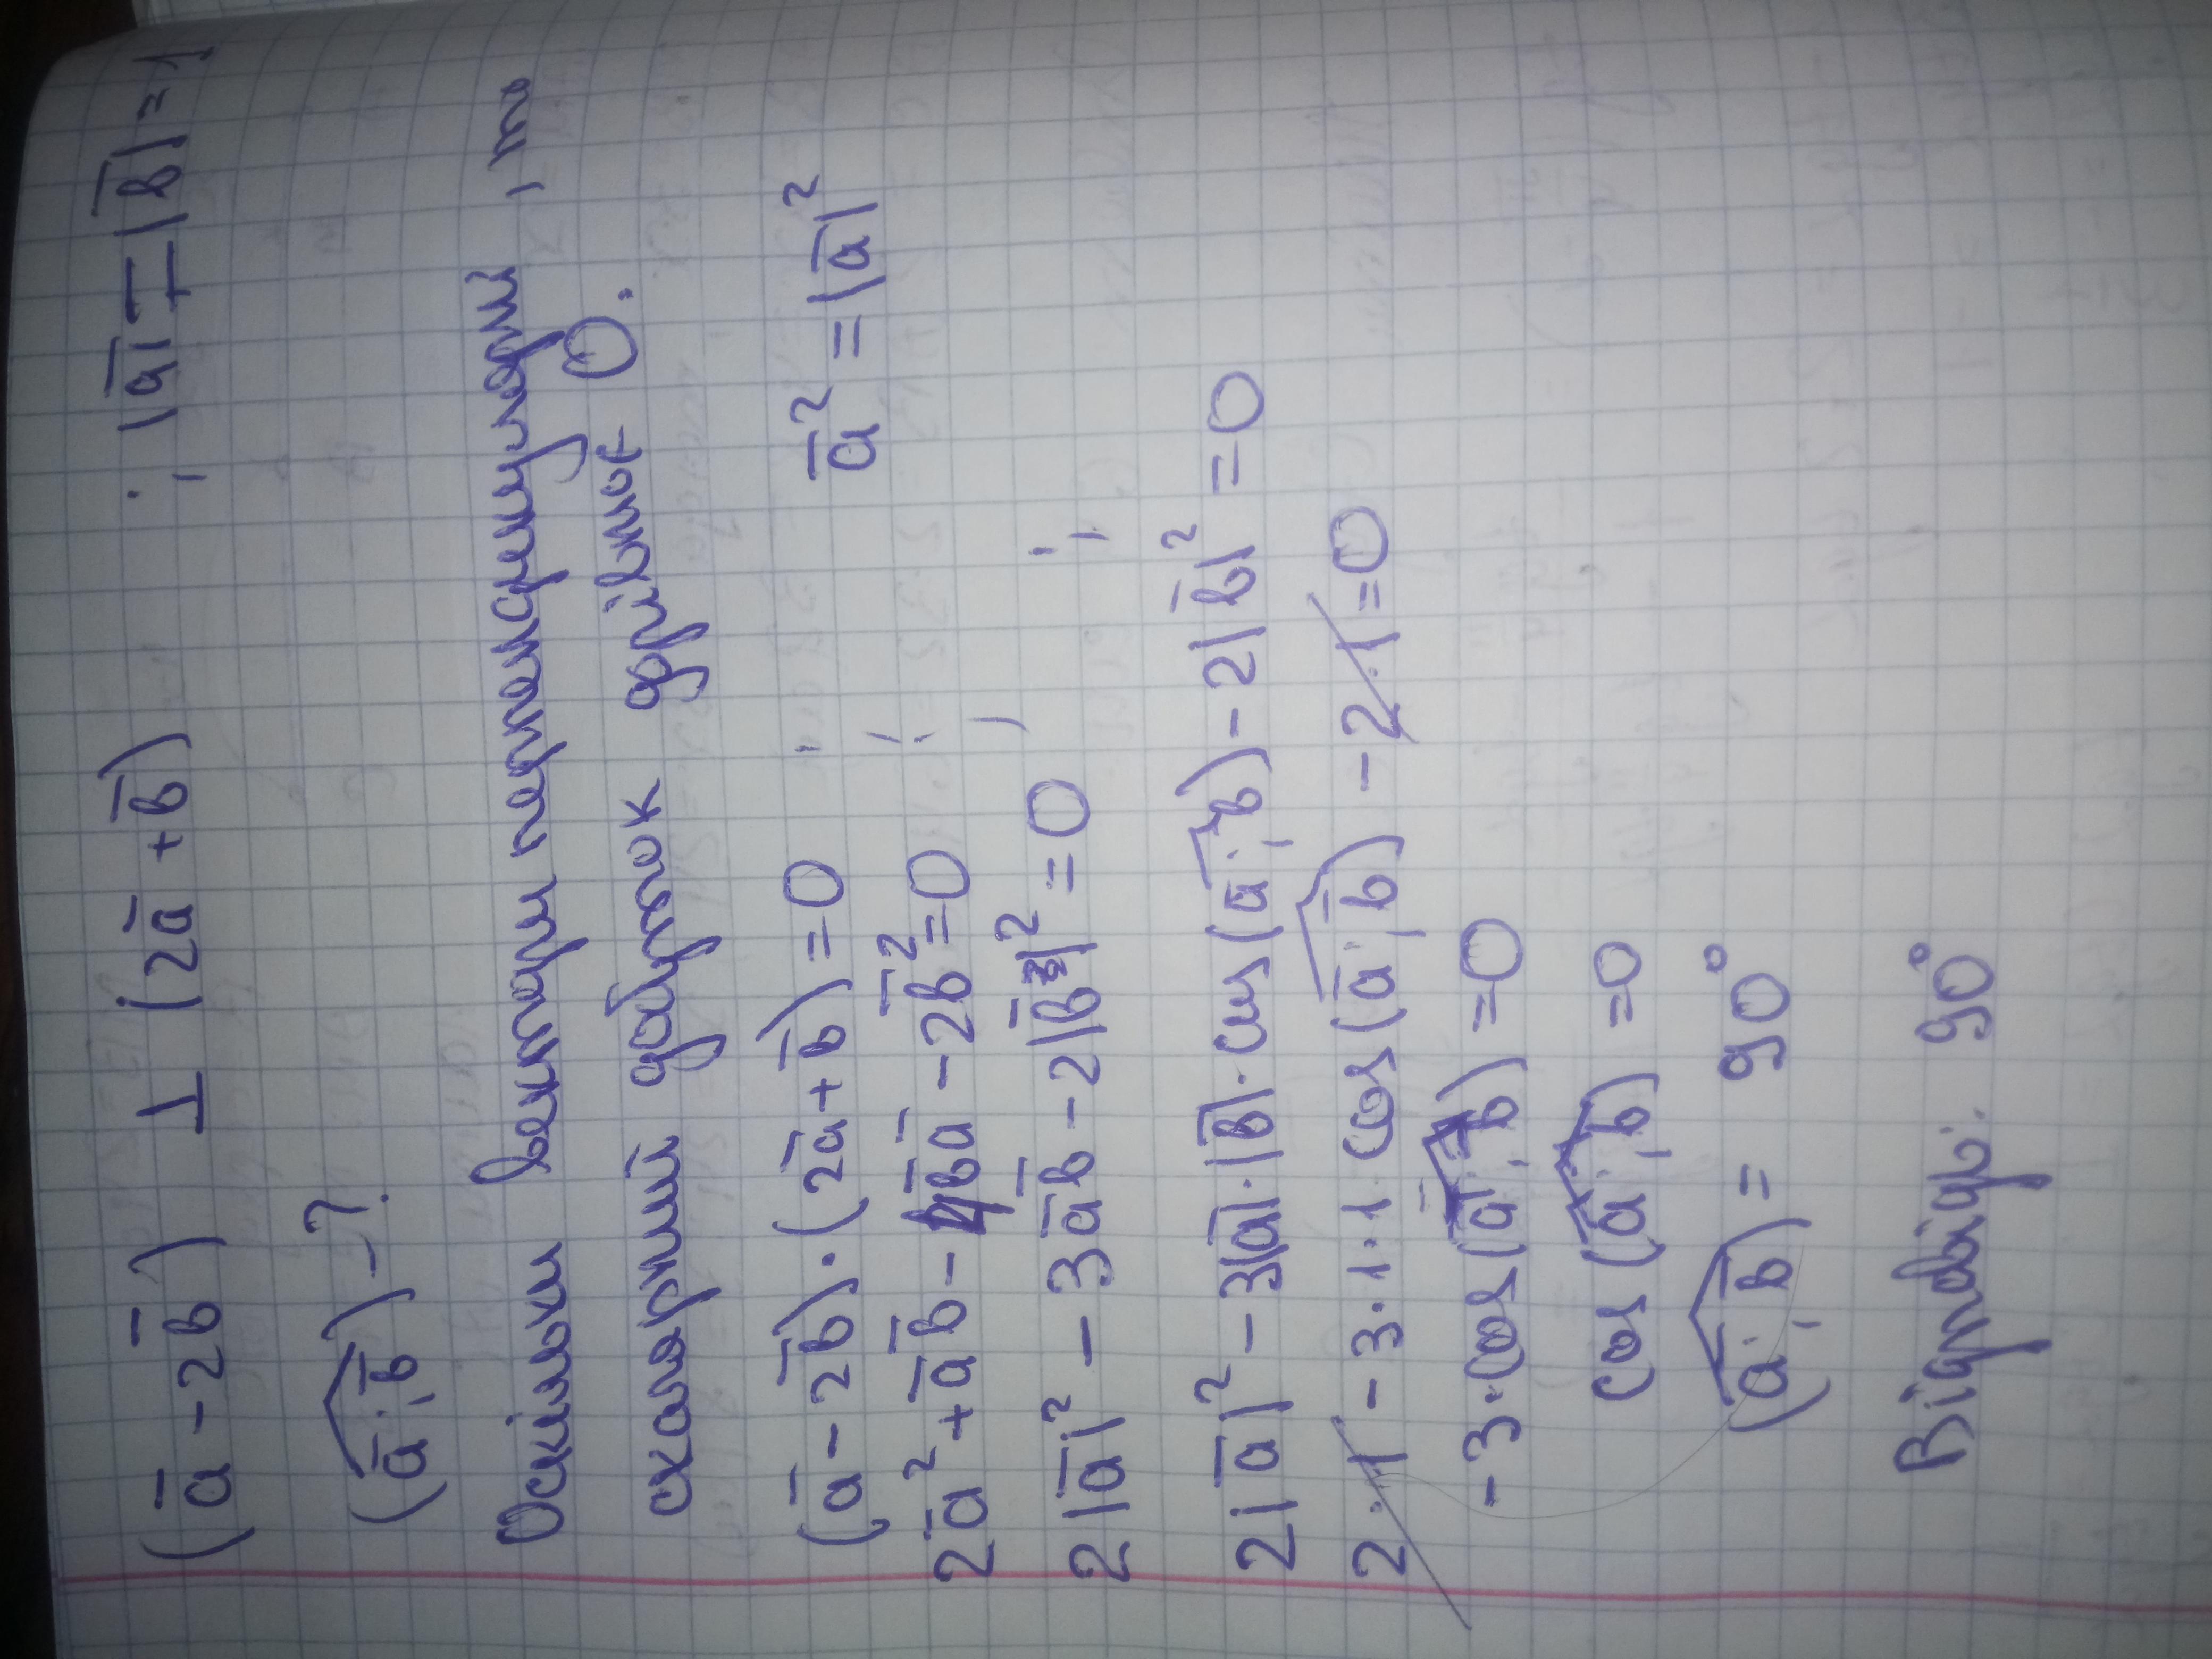 (a̅ - 2b̅) ⊥ (2a̅ + b̅) ; |a̅| = |b̅| = 1
(a̅; b̅) - ?
Оскільки вектори перпендикулярні, то
скалярний добуток дорівнює 0.
(a̅ - 2b̅) · (2a̅ + b̅) = 0 a̅² = |a̅|²
2a̅² + a̅b̅ - 4b̅a̅ - 2b̅² = 0
2|a̅|² - 3a̅b̅ - 2|b̅|² = 0
2|a̅|² - 3|a̅| · |b̅| · cos(a̅; b̅) - 2|b̅|² = 0
2 · 1 - 3 · 1 · 1 cos(a̅; b̅) - 2 · 1 = 0
-3 · cos(a̅; b̅) = 0
cos(a̅; b̅) = 0
(a̅; b̅) = 90°
Відповідь: 90°